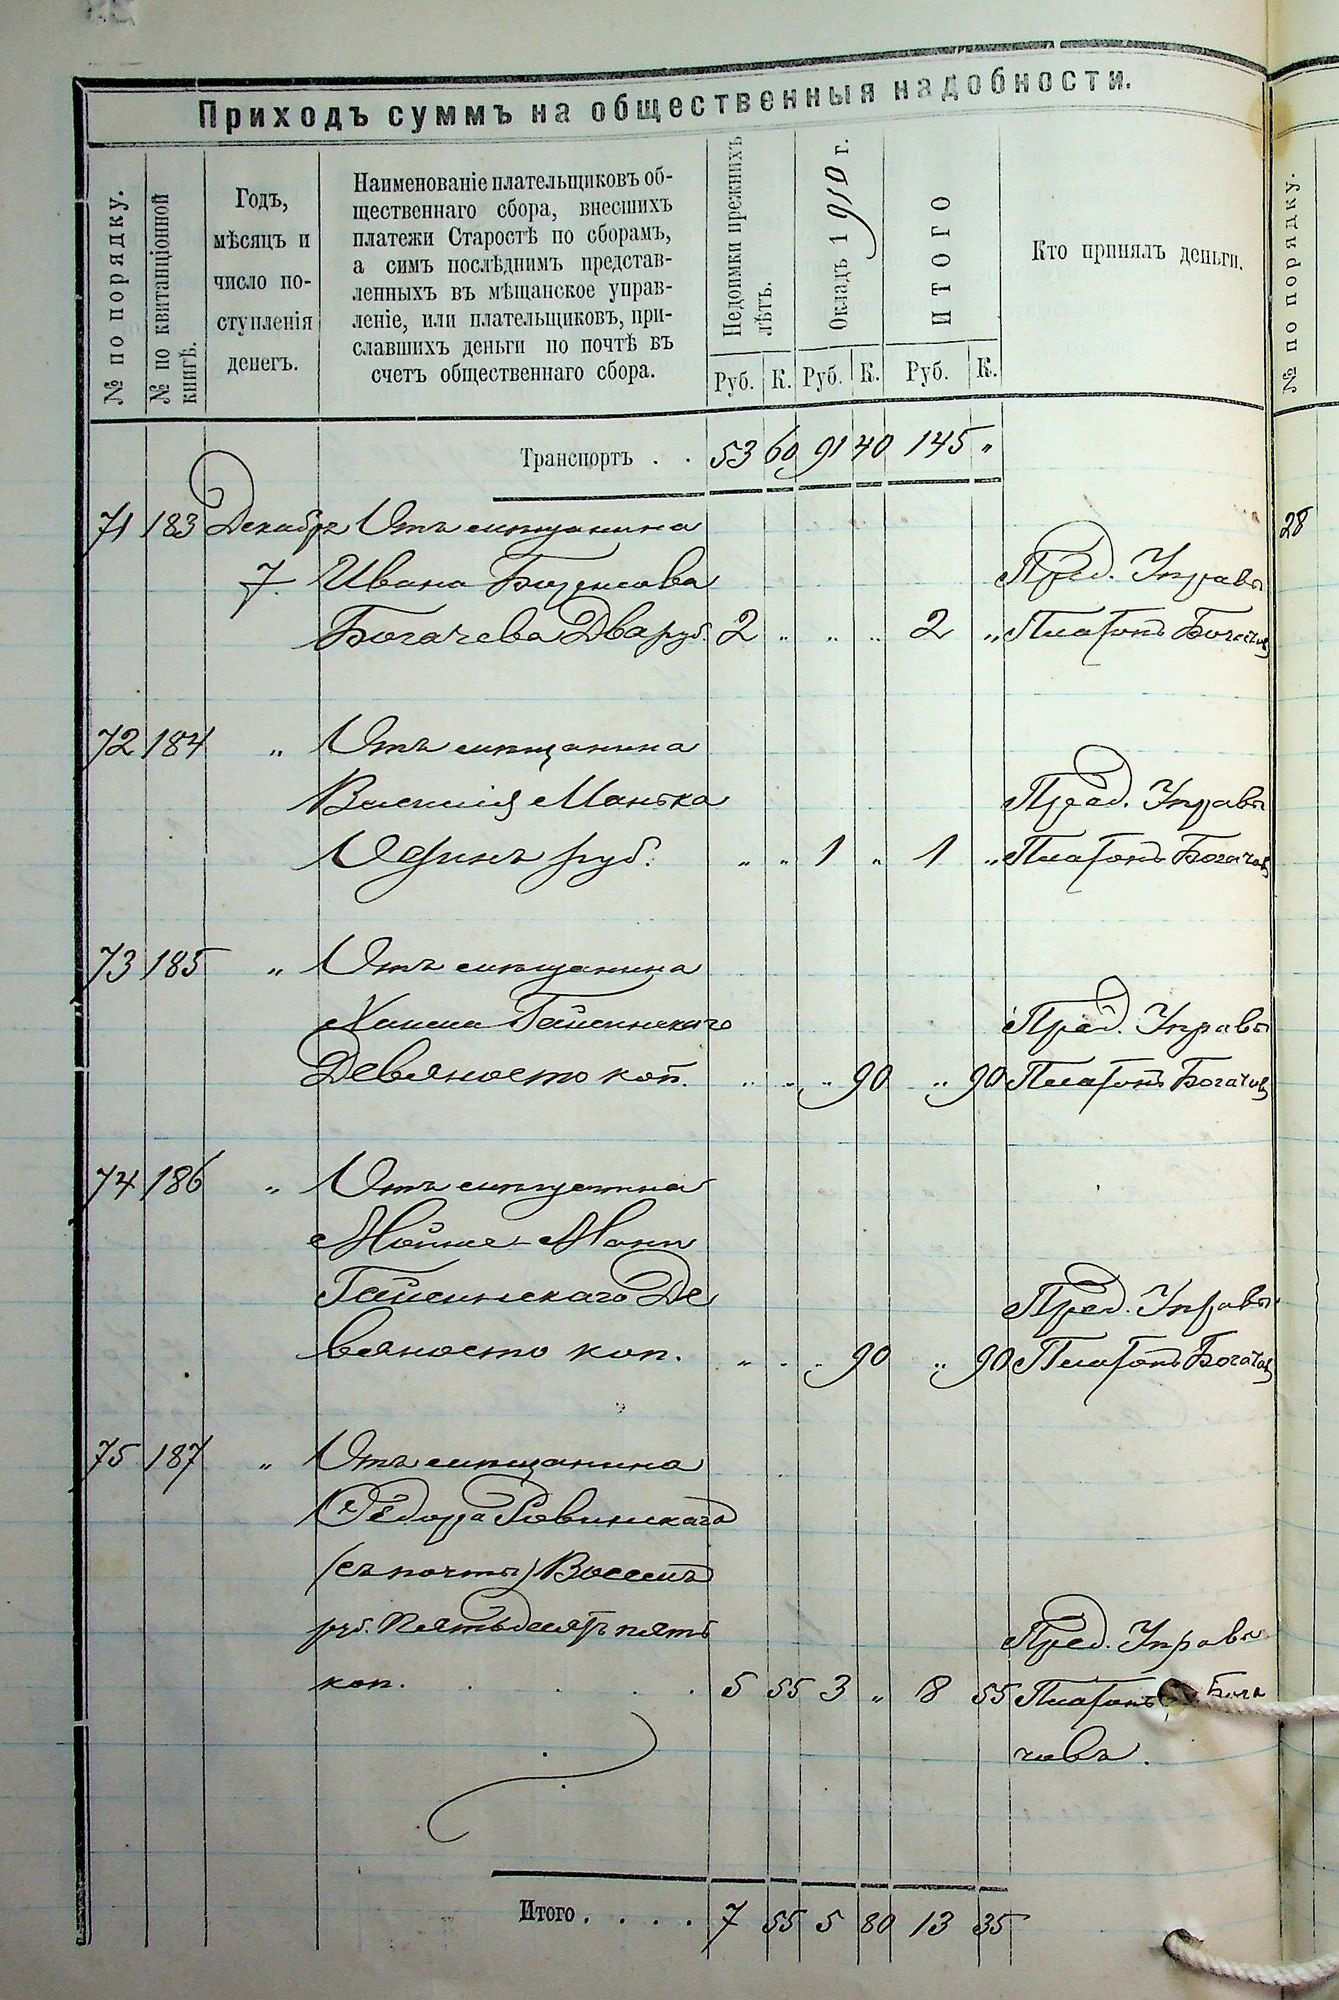 Приходъ суммъ на общественныя надобности.
№ по порядку.
№ по квитанціонной
книгѣ.
Годъ,
мѣсяцъ и
число по-
ступленія
денегъ.
Наименованіе плательщиковъ об-
щественнаго сбора, внесшихъ
платежи Старостѣ по сборамъ,
а симъ послѣднимъ представ-
ленныхъ въ мѣщанское управ-
леніе, или плательщиковъ, при-
славшихъ деньги по почтѣ въ
счетъ общественнаго сбора.
Недоимки прежнихъ
лѣтъ.
Окладъ 1910 г.
ИТОГО
Кто принялъ деньги.
Руб. К. Руб. К. Руб. К.
№ по порядку.
Транспортъ . . 53 60 91 40 145 "
71 183 Декабрь Отъ мѣщанина
28
7 Ивана
Пред. Управы
Богачева Два руб. 2 " " " 2 " Платонъ Богачевъ
72 184 " Отъ мѣщанина
Василія Манька
Пред. Управы
Одинъ руб. " " 1 " 1 " Платонъ Богачевъ
73 185 " Отъ мѣщанина
Хаима Гайсинскаго
Пред. Управы
Девяносто коп. " " " 90 " 90 Платонъ Богачевъ
74 186 " Отъ мѣщанина
Мойше-
Гайсинскаго Де
Пред. Управы
вяносто коп. " " " 90 " 90 Платонъ Богачевъ
75 187 " Отъ мѣщанина
Ѳедора Ровинскаго
(съ почты) Восемь
руб. Пятьдесятъ пять
Пред. Управы
коп. . . . . . 5 55 3 " 8 55 Платонъ Бога
чевъ.
Итого . . . . 7 55 5 80 13 35